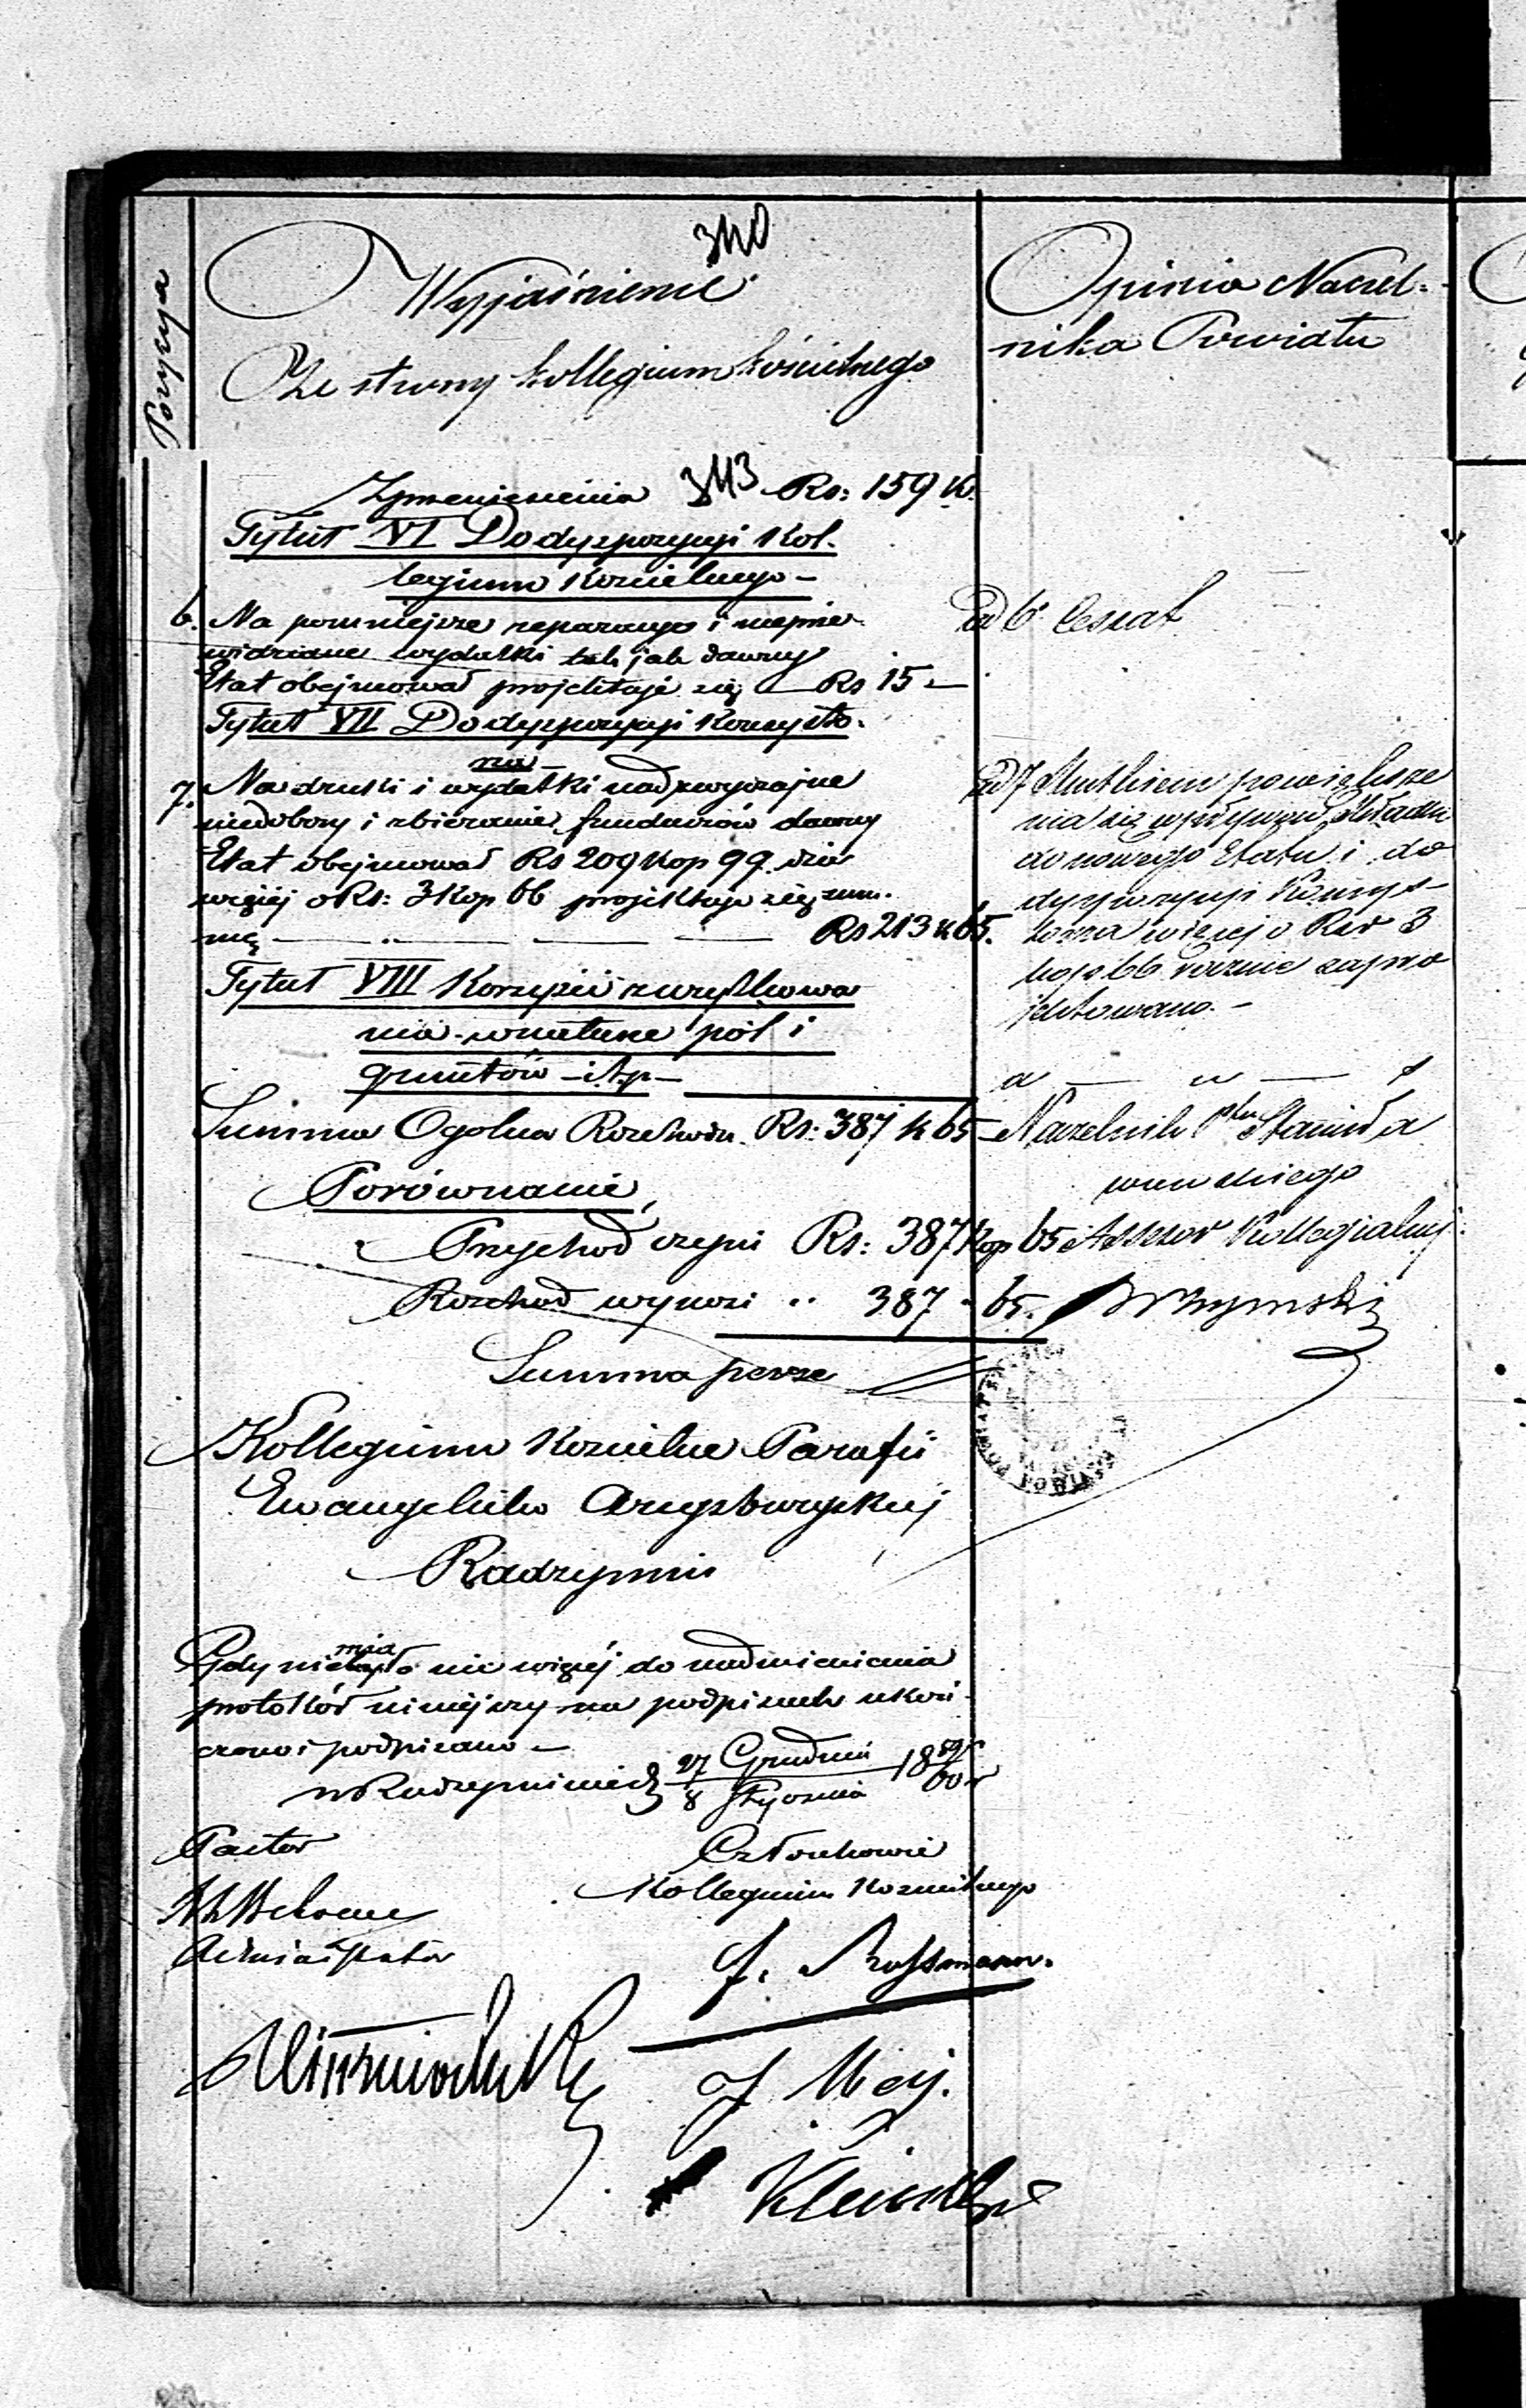 340
Pozycya
Wyjaśnienie
Ze strony kollegium kościelnego
Z przeniesienia 343 Rs: 159 K.
Tytuł VI Do dyspozycyi Kol-
legium Kościelnego —
6. Na pomniejsze reparacye i nieprze-
widziane wydatki tak jak dawny
Etat obejmował projektuje się — Rs 15 —
Tytuł VII Do dyspozycyi Konsysto-
rza —
7. Na druki i wydatki nadzwyczajne
niedobory i zbieranie funduszów dawny
Etat obejmował Rs 209 Kop 99
więcej o Rs: 3 Kop 66 projektuje się sum-
mę — „ — — — Rs 213 k 65.
Tytuł VIII Korzyści z użytkowa
nia w naturze pól i
gruntów — itp —
Summa Ogólna Rozchodu Rs: 387 k 65
Porównanie
Przychod czyni Rs: 387 Kop 65
Rozchod wynosi „ 387 - 65.
Summa per se
Kollegium Koscielne Parafii
Ewangelicko Augsburgskiej
Radzymin
Gdy nie miało nic więcej do nadmienienia
protokół niniejszy na podpisach ukoń-
czono i podpisano —
w Radzyminie d 27 Grudnia / 8 Stycznia 18 59/60 r
Pastor
Administrator
Członkowie
Kollegium Koscielnego
J. Rossmann.
J May.
Opinia Naczel-
nika Powiatu
ad 6 cessat
ad 7 Skutkiem powiększe
nia się wpływu składki
do nowego Etatu i do
dyspozycyi Konsys-
torza więcej o Rsr 3
kop 66 rocznie zapro
jektowano. —
Naczelnik Ptu Stanisła
wowskiego
Assessor Kollegialny